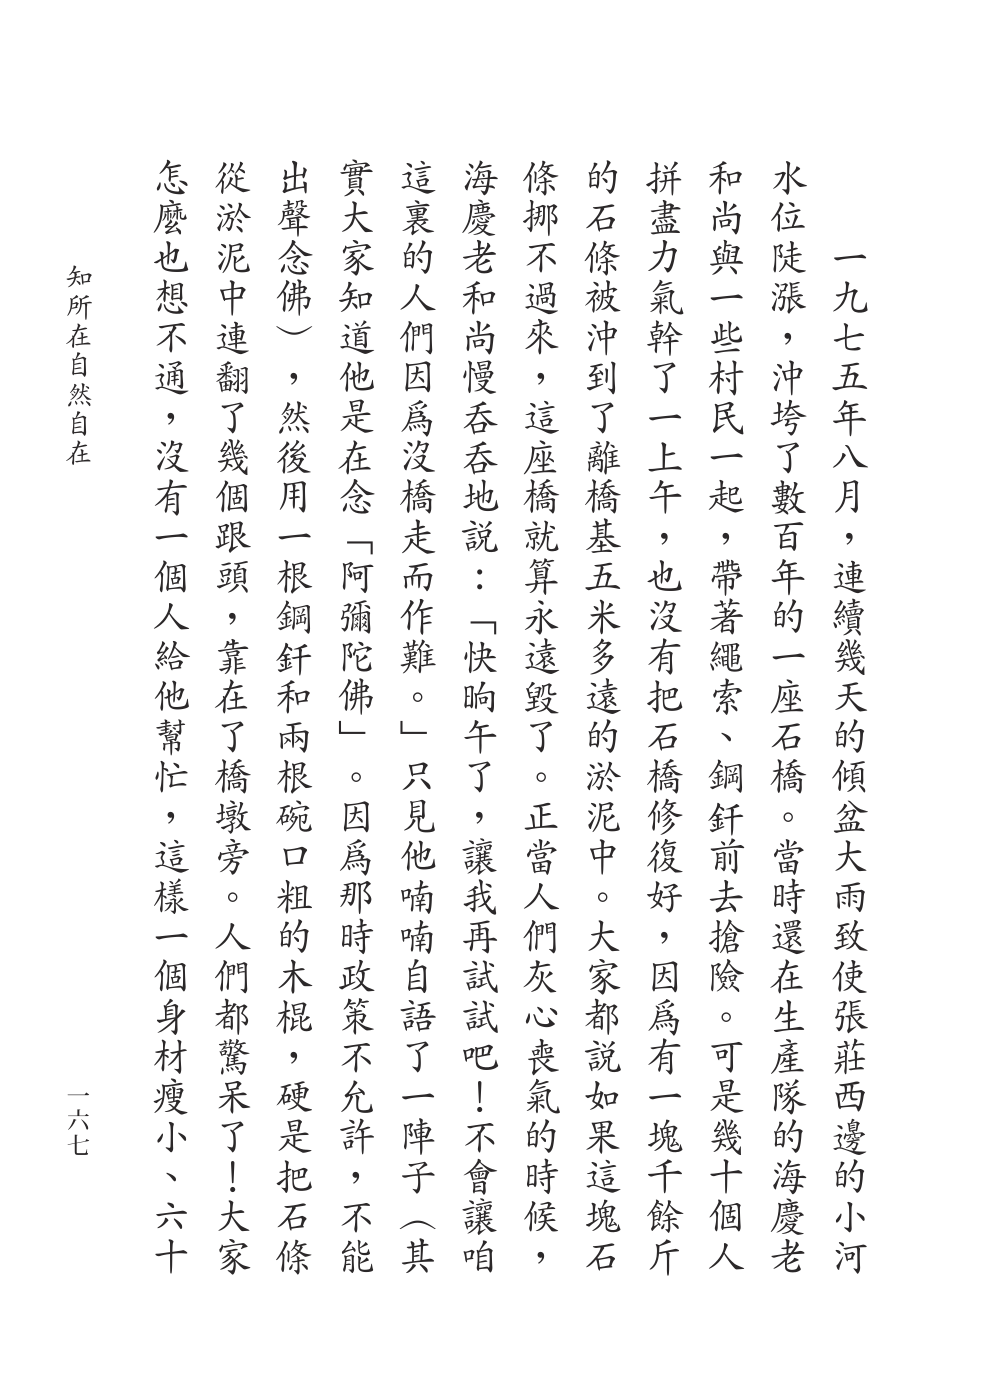 一九七五年八月，連續幾天的傾盆大雨致使張莊西邊的小河
水位陡漲，沖垮了數百年的一座石橋。當時還在生產隊的海慶老
和尚與一些村民一起，帶著繩索、鋼釺前去搶險。可是幾十個人
拼盡力氣幹了一上午，也沒有把石橋修復好，因爲有一塊千餘斤
的石條被沖到了離橋基五米多遠的淤泥中。大家都説如果這塊石
條挪不過來，這座橋就算永遠毀了。正當人們灰心喪氣的時候，
海慶老和尚慢吞吞地説：「快晌午了，讓我再試試吧！不會讓咱
這裏的人們因爲沒橋走而作難。」只見他喃喃自語了一陣子（其
實大家知道他是在念「阿彌陀佛」。因爲那時政策不允許，不能
出聲念佛），然後用一根鋼釺和兩根碗口粗的木棍，硬是把石條
從淤泥中連翻了幾個跟頭，靠在了橋墩旁。人們都驚呆了！大家
怎麼也想不通，沒有一個人給他幫忙，這樣一個身材瘦小、六十
知所在自然自在
一六七